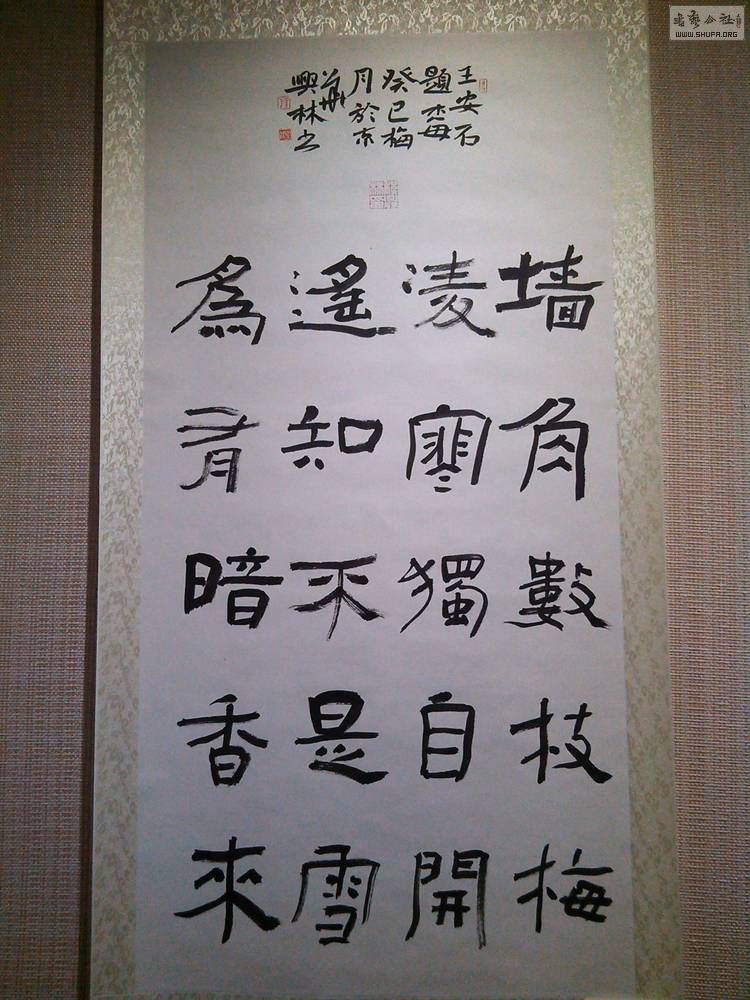 墙角數枝梅
凌寒獨自開
遙知不是雪
爲有暗香來
王安石
題梅
癸巳梅
月於京
華
興林书
書藝公社
WWW.SHUFA.ORG